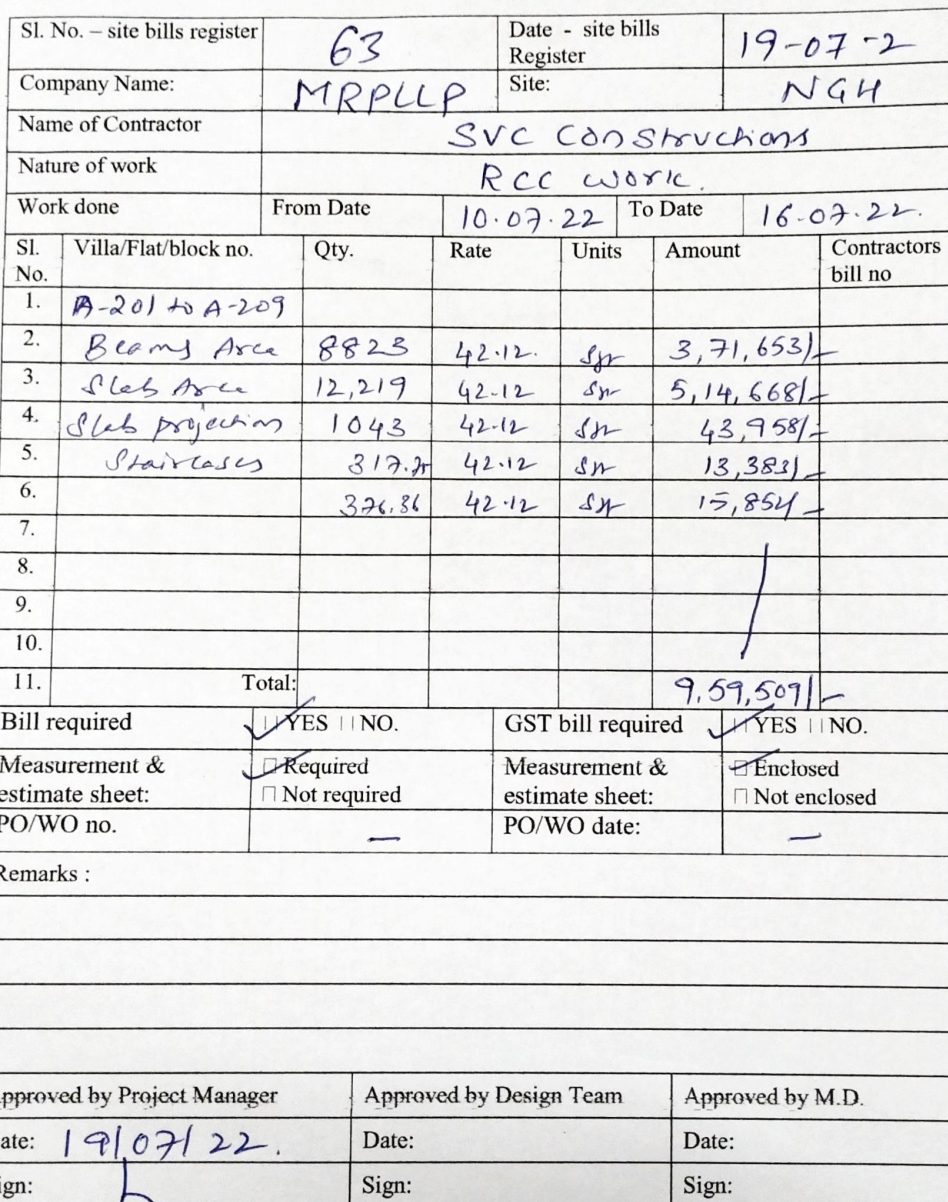 Sl. No. – site bills register 63 Date - site bills Register 19-07-2
Company Name: MRPLLP Site: NGH
Name of Contractor SVC Constructions
Nature of work RCC work.
Work done From Date 10.07.22 To Date 16.07.22.
Sl. No. Villa/Flat/block no. Qty. Rate Units Amount Contractors bill no
1. A-201 to A-209
2. Beams Area 8823 42.12. Sft 3,71,653/-
3. Slab Area 12,219 42.12 Sft 5,14,668/-
4. Slab projection 1043 42.12 Sft 43,958/-
5. Staircases 42.12 Sft 13,383/-
6. 376.36 42.12 Sft 15,852/-
7.
8.
9.
10.
11. Total: 9,59,509/-
Bill required YES NO. GST bill required YES NO.
Measurement & estimate sheet: Required Measurement & estimate sheet: Enclosed
Not required Not enclosed
PO/WO no. — PO/WO date: —
Remarks :
pproved by Project Manager Approved by Design Team Approved by M.D.
ate: 19/07/22. Date: Date:
ign: Sign: Sign: